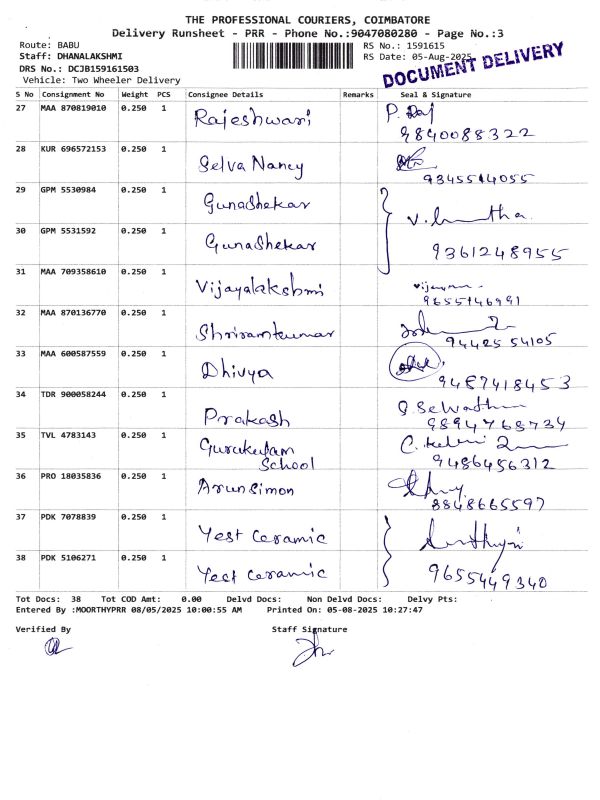 THE PROFESSIONAL COURIERS, COIMBATORE
Delivery Runsheet - PRR - Phone No.:9047080280 - Page No.:3
Route: BABU
RS No.: 1591615
Staff: DHANALAKSHMI
RS Date: 05-Aug-2025
DRS No.: DCJB159161503
Vehicle: Two Wheeler Delivery
DOCUMENT DELIVERY
S No Consignment No Weight PCS Consignee Details Remarks Seal & Signature
27 MAA 870819010 0.250 1 Rajeshwari P. Raj
9840088322
28 KUR 696572153 0.250 1 Selva Nancy
9345514055
29 GPM 5530984 0.250 1 GunaShekar
30 GPM 5531592 0.250 1 GunaShekar
9361248955
31 MAA 709358610 0.250 1 Vijayalakshmi
9655146991
32 MAA 870136770 0.250 1 Shriramkumar
94425 54105
33 MAA 600587559 0.250 1 Dhivya
9487418453
34 TDR 900058244 0.250 1 Prakash
9894768734
35 TVL 4783143 0.250 1 Gurukulam School
9486456312
36 PRO 18035836 0.250 1 Arun Simon
8848665597
37 PDK 7078839 0.250 1 Yest Ceramic
38 PDK 5106271 0.250 1 Yest Ceramic
9655449340
Tot Docs: 38 Tot COD Amt: 0.00 Delvd Docs: Non Delvd Docs: Delvy Pts:
Entered By :MOORTHYPRR 08/05/2025 10:00:55 AM Printed On: 05-08-2025 10:27:47
Verified By Staff Signature